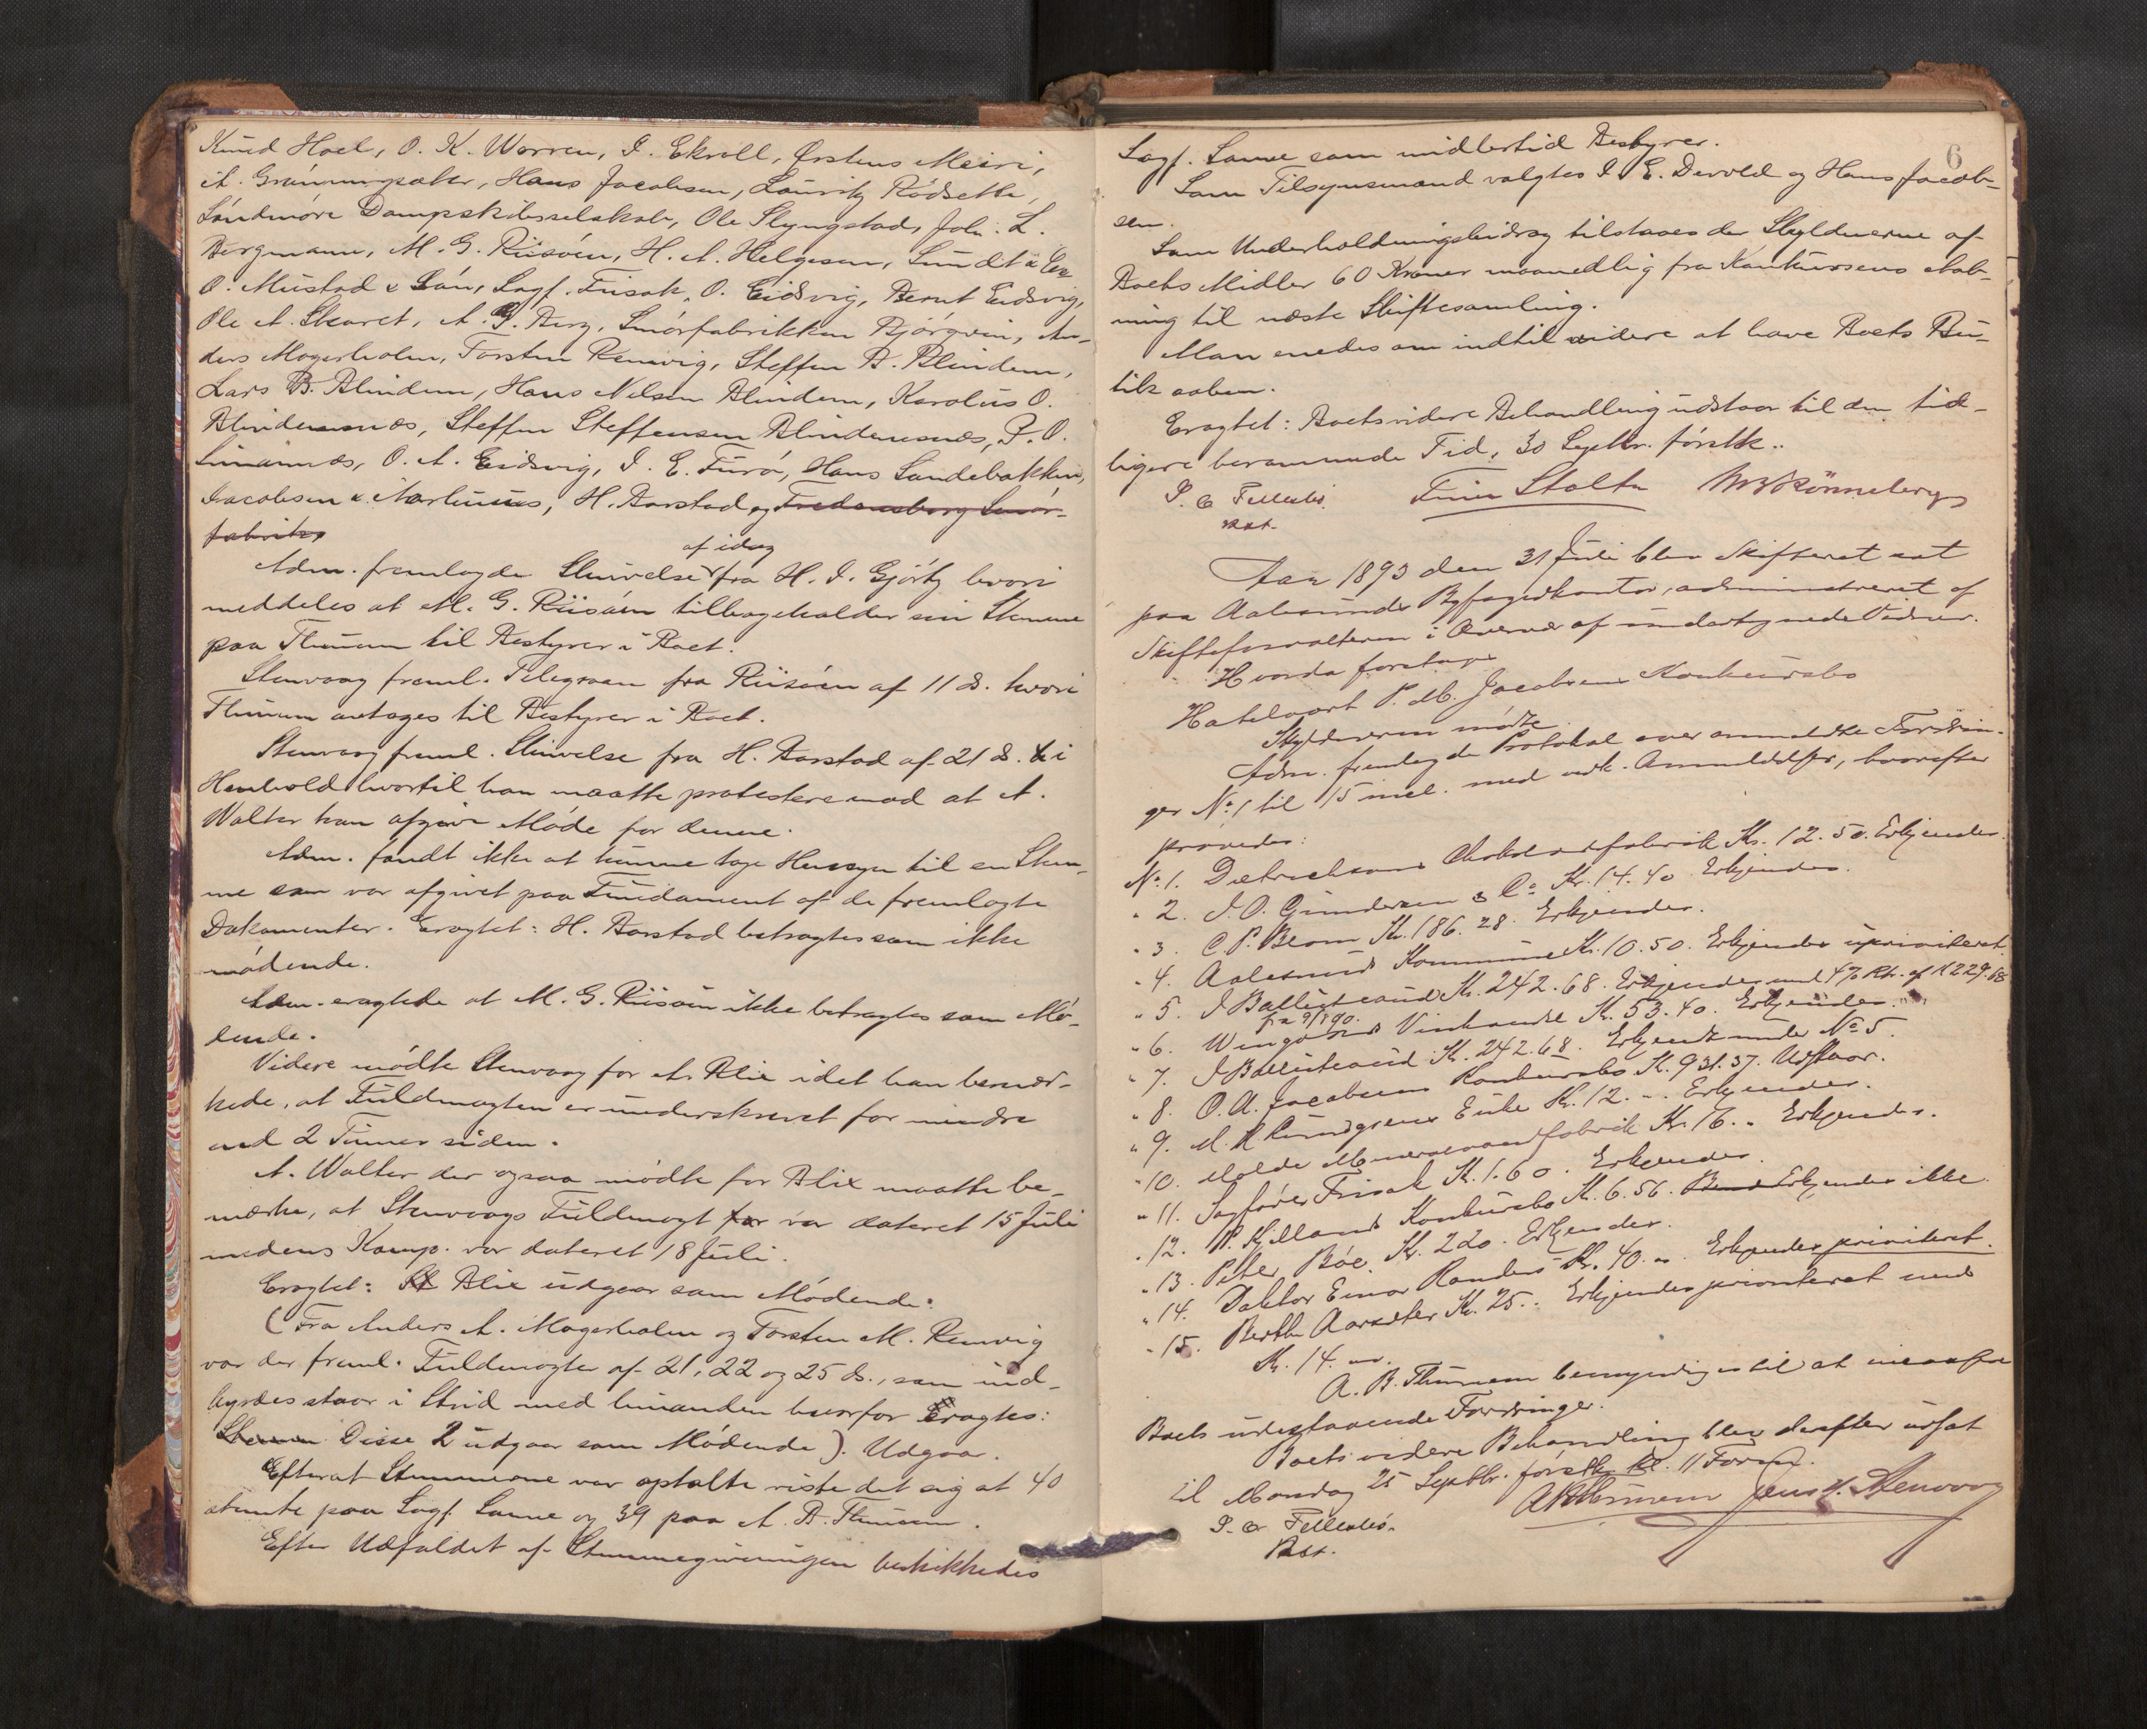 Knud Hoel, O. K. Warren, I. Ekroll, Ørstens Meieri,
A. Grønningsæter, Hans Jacobsen, Lauritz Rødsette,
Søndmøre Dampskibsselskab, Ole Slyngstad, Joh. L.
Bergmann, M. G. Riisøen, H. A. Helgesen, Sundt & Co
O. Mustad & Søn, Sagf. Frisak, O. Eidsvig, Bernt Eidsvig,
Ole A. Skaret, A. G. Berg, Smørfabrikken Bjørgvin, An-
ders Magerholm, Torsten Remvig, Steffen B. Blindem,
Lars B. Blindem, Hans Nilsen Blindem, Karolus O.
Blindemsnæs, Steffen Steffensen Blindemsnæs, P. O.
O. A. Eidsvig, I. E. Furø, Hans Sandebakken,
Jacobsen & H. Aarstad og Fredensborg Smør-
fabrik,
Adm. fremlagde Skrivelse af idag fra H. I. Gjørtz hvori
meddeles at M. G. Riisøen tilbageholder sin Stemme
paa Thunem til Bestyrer i Boet.
Stenvaag freml. Telegram fra Riisøen af 11 ds. hvori
Thunem antages til Bestyrer i Boet.
Stenvaag freml. Skrivelse fra H. Aarstad af 21 ds. i
Henhold hvortil han maatte protestere mod at A.
Walter kan afgive Møde for denne.
Adm. fandt ikke at kunne tage Hensyn til en Stem-
me som var afgivet paa Fundament af de fremlagte
Dokumenter. Eragtet: H. Aarstad betragtes som ikke
mødende.
Adm. eragtede at M. G. Riisøen ikke betragtes som Mø-
dende.
Videre mødte Stenvaag for A. Blix idet han bemær-
kede, at Fuldmagten er underskrevet for mindre
end 2 Timer siden.
A. Walter der ogsaa mødte for Blix maatte be-
mærke, at Stenvaags Fuldmagt var dateret 15 Juli
medens Komp. var dateret 18 Juli.
Eragtet: Blix udgaar som Mødende.
(Fra Anders A. Magerholm og Torsten M. Remvig
var der freml. Fuldmagter af 21, 22 og 25 ds., som ind-
byrdes staar i Strid med hinanden hvorfor Eragtes:
Disse 2 udgaar som Mødende). Udgaar.
Efterat Stemmerne var optalte viste det sig at 40
stemte paa Sagf. Sanne og 39 paa A. B. Thunem.
Efter Udfaldet af Stemmegivningen beskikkedes
6
Sagf. Sanne som midlertid Bestyrer.
Som Tilsynsmænd valgtes I. E. Devold og Hans Jacob-
sen.
Som Underholdningsbidrag tilstaaes der Skyldnerne af
Boets Midler 60 Kroner maanedlig fra Konkursens Aab-
ning til næste Skiftesamling.
Man enedes om indtil videre at have Boets Bu-
tik aaben.
Eragtet: Boets videre Behandling udstaar til den tid-
ligere berammede Tid, 30 Septbr. førstk..
Stoltz M Rønneberg
Aar 1893 den 31 Juli blev Skifteret sat
paa Aalesunds Byfogedkontor, administreret af
Skifteforvalteren i Overvær af undertegnede Vidner.
Hvorda foretages
P. M. Jacobsens Konkursbo
Skyldneren mødte.
Adm. fremlagde Protokol over anmeldte Fordrin-
ger No 1 til 15 incl. med vedk. Anmeldelser, hvorefter
prøvedes:
No 1. Dietrichsons Chokoladefabrik Kr. 12.50. Erkjendes.
" 2. J. O. Gundersen & Co Kr. 14.40 Erkjendes.
" 3. C. P. Blom Kr. 186.28. Erkjendes.
" 4. Aalesunds Kommune Kr. 10.50. Erkjendes uprioriteret
" 5. I Ballestrand Kr. 242.68. Erkjendes med 4% Rt. af K 229.68
fra 9/1 90.
" 6. Vinhandel K. 53.40. Erkjendes.
" 7. I Ballestrand K. 242.68. Erkjendt under No 5.
" 8. O. A. Jacobsens Konkursbo K. 931.37. Udstaar.
" 9. M. K Enke Kr. 12. " Erkjendes.
" 10. Molde Mineralvandfabrik Kr. 16. " Erkjendes.
" 11. Sagfører Frisak K. 1.60. Erkjendes.
" 12. P. Kjellands Konkursbo K. 6.56. Erkjendes ikke
" 13. Peter Bøe. Kr. 220. Erkjendes.
" 14. Doktor Einar Randers Kr. 40. " Erkjendes prioriteret.
" 15. Berthe Aarseter K. 25. " Erkjendes prioriteret med
Kr. 14. "
A. B. Thunem bemyndiges til at inkassere
Boets udestaaende Fordringer.
Boets videre Behandling blev derefter udsat
til Mandag 25 Septbr. førstk. kl. 11 Form.
A B Thunem Jens A. Stenvaag